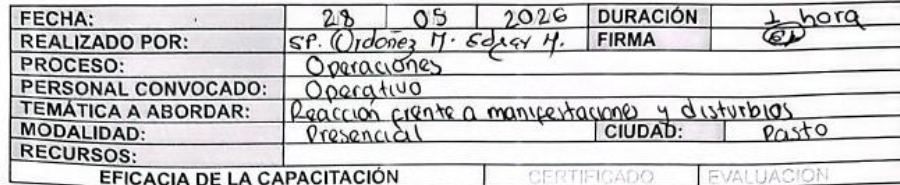 FECHA: 28 05 2026 DURACIÓN 1 hora
REALIZADO POR: SP. Ordoñez M. Edgar H. FIRMA
PROCESO: Operaciones
PERSONAL CONVOCADO: Operativo
TEMÁTICA A ABORDAR: Reacción frente a manifestaciones y disturbios
MODALIDAD: Presencial CIUDAD: Pasto
RECURSOS:
EFICACIA DE LA CAPACITACIÓN CERTIFICADO EVALUACION